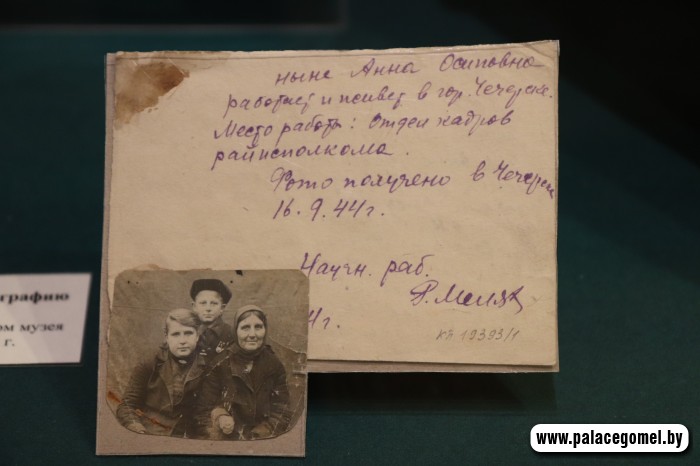 ныне Анна Осиповна
работает и живет в гор. Чечерске.
Место работы: Отдел кадров
райисполкома.
Фото получено в Чечерске
16.9.44 г.
Научн. раб.
4 г.
КП 19393/1
ографию
ом музея
г.
www.palacegomel.by